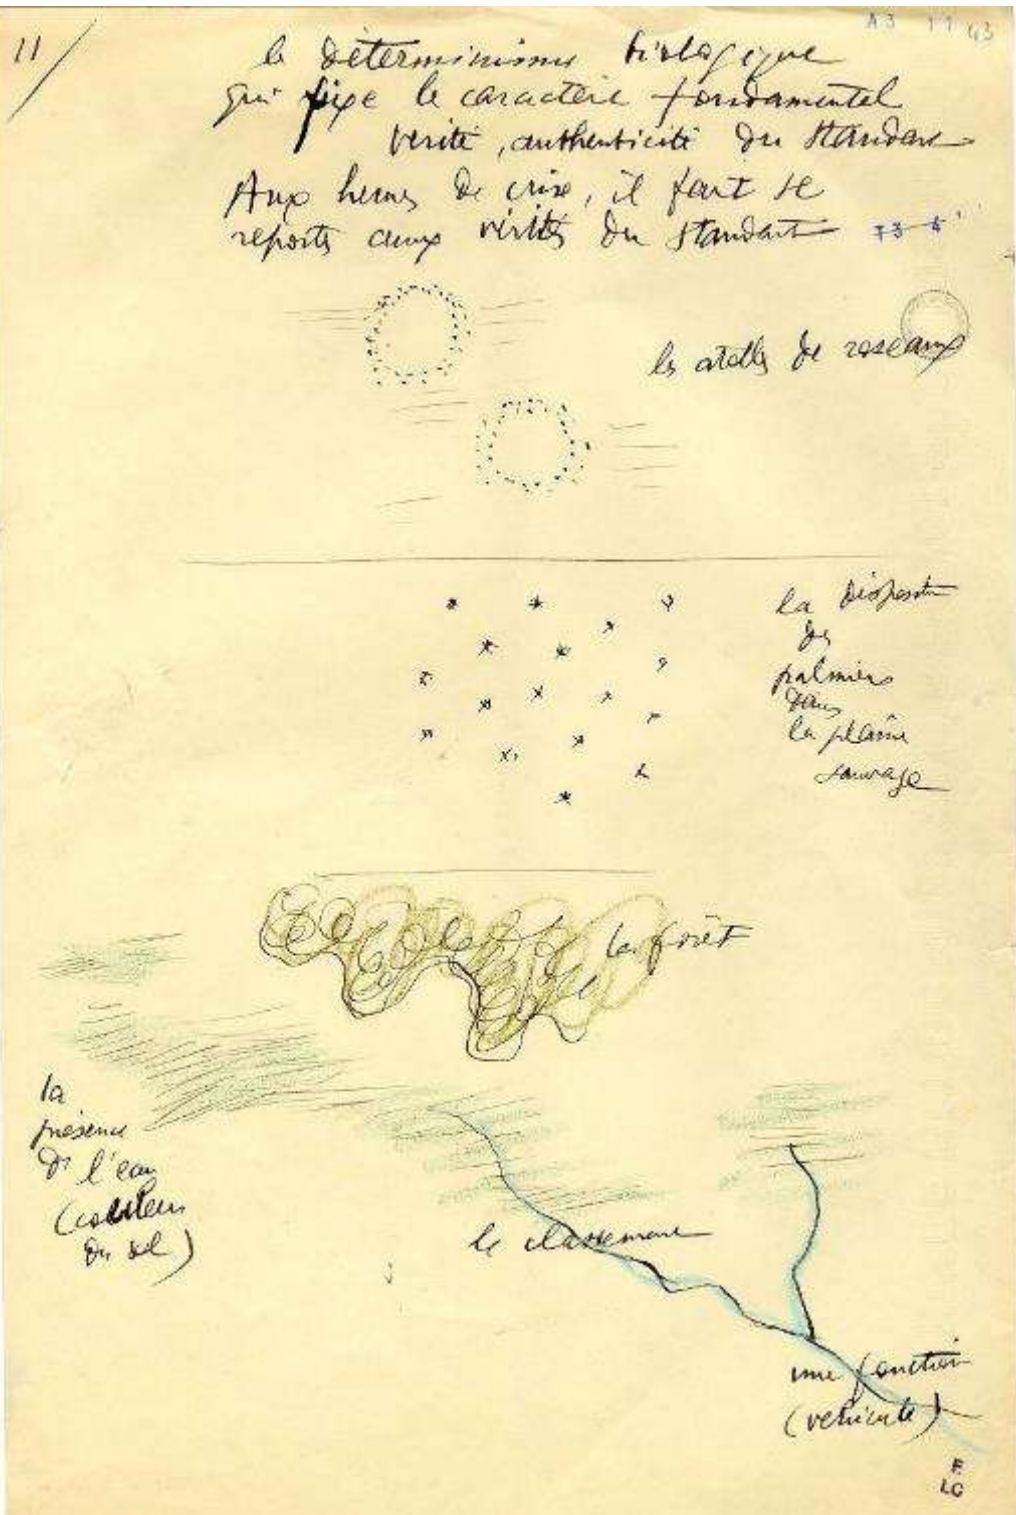 11/
A3 11 43
le déterminisme biologique
qui fixe le caractère fondamental
vérité, authenticité du standard
Aux heures de crise, il faut se
reporter aux vérités du standart
les atolls de roseaux
la dispersion
des
palmiers
dans
la plaine
sauvage
la forêt
la
présence
de l'eau
(couleur
du sol)
le classement
une fonction
(véhicule)
F
LC